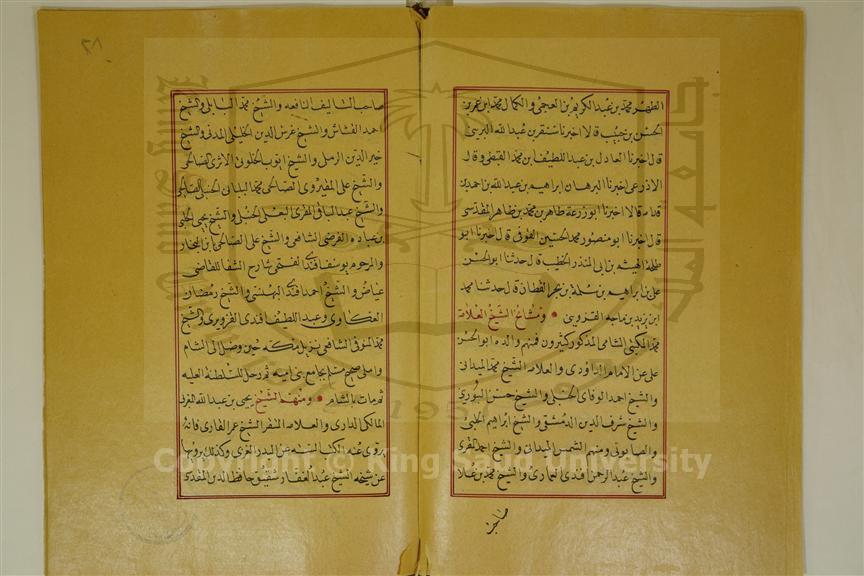 الظهر محمد بن عبد الكريم بن العجمي والكمال محمد ابن عمر بن
الحسن بن حبيب قالا اخبرنا سنقر بن عبد الله الزيني
قال اخبرنا العادل بن عبد اللطيف بن محمد القبيطي وقال
الاذرعي اخبرنا البرهان ابراهيم بن عبد الله بن احمد بن
قدامه قالا اخبرنا ابو زرعة طاهر بن محمد بن طاهر المقدسي
قال اخبرنا ابو منصور محمد الحسين القوفي قال اخبرنا ابو
طلحة الهيثم بن ابي المنذر الخطيب قال حدثنا ابو الحسن
علي بن ابراهيم بن سلمة بن بحر القطان قال حدثنا محمد
ابن يزيد بن ماجه القزويني ومشائخ الشيخ العلامة
محمد المكتبي الشامي المذكور كثيرون فمنهم والده ابو الحسن
علي عن الامام الداودي والعلامة الشيخ محمد الميداني
والشيخ احمد الوفاي الحنبلي والشيخ حسن البوريني
والشيخ شرف الدين الدمشقي والشيخ ابراهيم الحلبي
والصابوني ومنهم الشمس الميداني والشيخ احمد المقري
والشيخ عبد الرحمن افندي العمادي والشيخ محمد بن علان
صاحب
٢٨
صاحب التاليف النافعه والشيخ محمد البابلي والشيخ
احمد القشاشي والشيخ غرس الدين الخليلي المدني والشيخ
خير الدين الرملي والشيخ ايوب الخلوتي الاثري الصالحي
والشيخ علي القبردي الصالحي محمد البلباني الحنبلي الصالحي
والشيخ عبد الباقي المقري البعلي الحنبلي والشيخ يحيى الحلبي
بن عباده الفرضي الشافعي والشيخ علي الصالحي ابن النجار
والمرحوم يوسف افندي الفتحي شارح الشفا للقاضي
عياض والشيخ احمد افندي البهنسي والشيخ رمضان
العكاري وعبد اللطيف افندي القزويري والشيخ
محمد المنوفي الشافعي نزيل مكة حين وصل الى الشام
واملى صحيح مسلم بجامع بني امية ثم رحل للسلطنة العليه
ثم مات بالشام ومنهم الشيخ يحيى بن عبد الله المغربي
المالكي الداري والعلامة المسفر الشيخ عمر القاري فانه
يروي عنه الكتب الستة عن البدر الغزي وكذلك يرويها
عن شيخه الشيخ عبد الغفار شقيق حافظ الدين المقدسي
Copyright © King Saud University